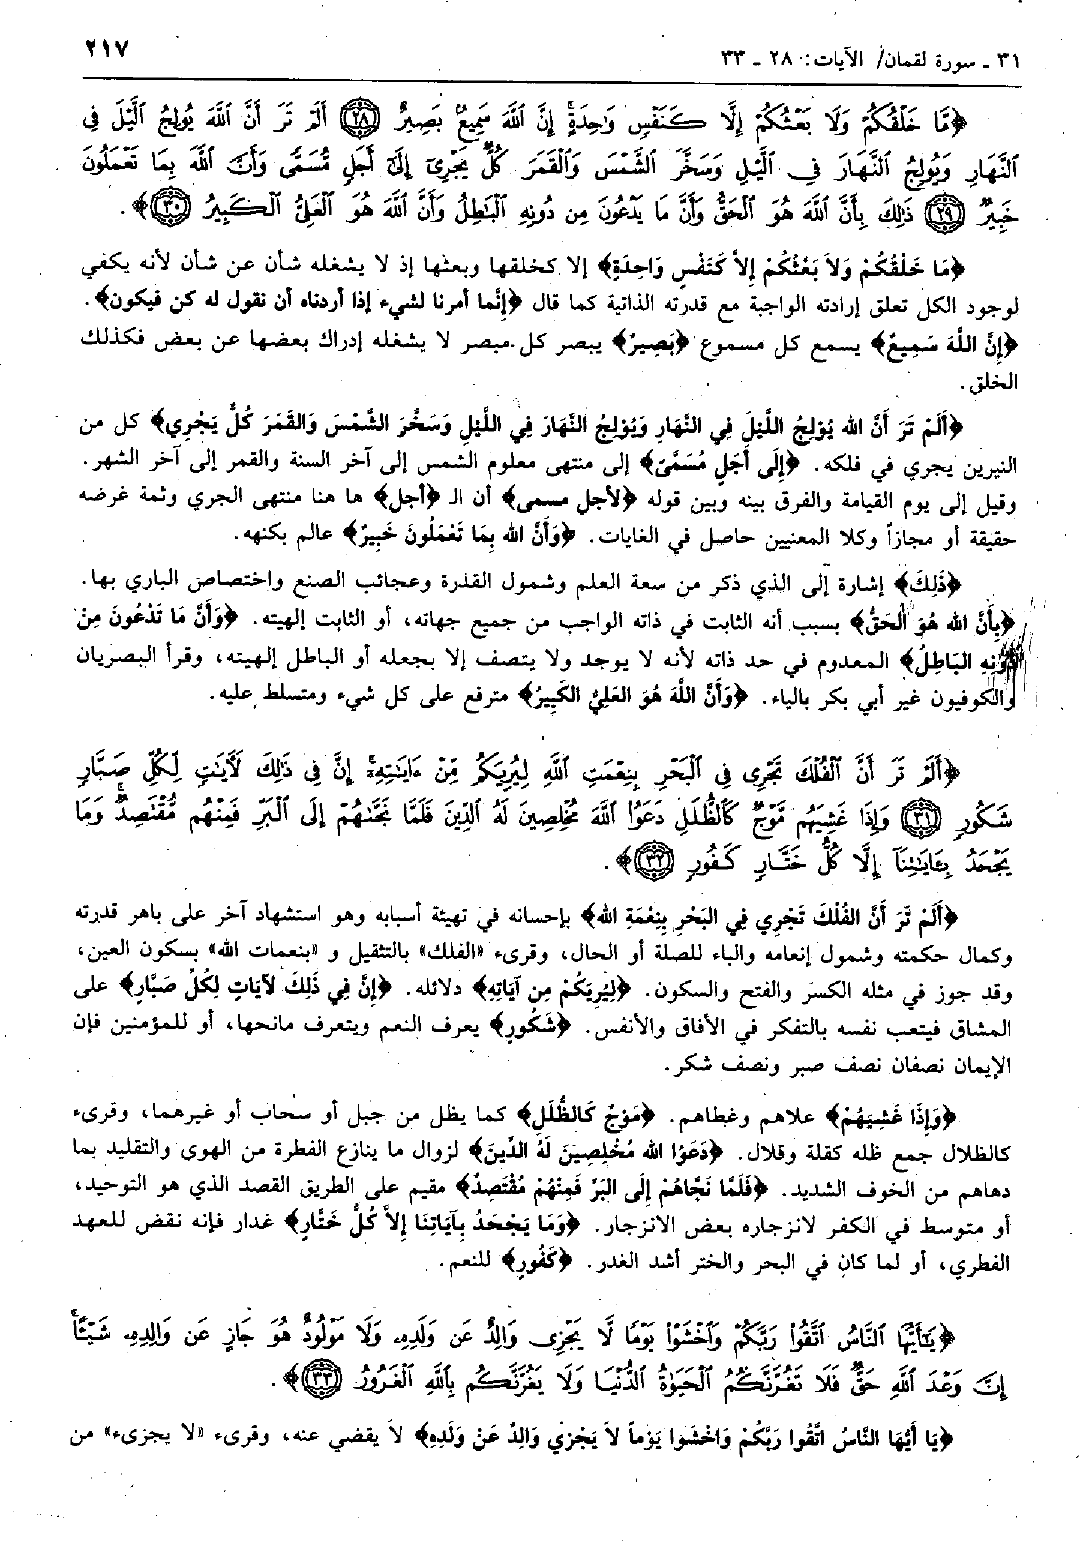 ٣١ ـ سورة لقمان/ الآيات: ٢٨ ـ ٣٣
٢١٧
﴿مَّا خَلْقُكُمْ وَلَا بَعْثُكُمْ إِلَّا كَنَفْسٍ وَاحِدَةٍ إِنَّ اللَّهَ سَمِيعٌ بَصِيرٌ ﴿٢٨﴾ أَلَمْ تَرَ أَنَّ اللَّهَ يُولِجُ اللَّيْلَ فِي
النَّهَارِ وَيُولِجُ النَّهَارَ فِي اللَّيْلِ وَسَخَّرَ الشَّمْسَ وَالْقَمَرَ كُلٌّ يَجْرِي إِلَى أَجَلٍ مُّسَمًّى وَأَنَّ اللَّهَ بِمَا تَعْمَلُونَ
خَبِيرٌ ﴿٢٩﴾ ذَلِكَ بِأَنَّ اللَّهَ هُوَ الْحَقُّ وَأَنَّ مَا يَدْعُونَ مِن دُونِهِ الْبَاطِلُ وَأَنَّ اللَّهَ هُوَ الْعَلِيُّ الْكَبِيرُ ﴿٣٠﴾﴾.
﴿مَا خَلْقُكُمْ وَلاَ بَعْثُكُمْ إِلاَّ كَنَفْسٍ وَاحِدَةٍ﴾ إلا كخلقها وبعثها إذ لا يشغله شأن عن شأن لأنه يكفي
لوجود الكل تعلق إرادته الواجبة مع قدرته الذاتية كما قال ﴿إنَّما أمرنا لشيء إذا أردناه أن نقول له كن فيكون﴾.
﴿إِنَّ اللَّهَ سَمِيعٌ﴾ يسمع كل مسموع ﴿بَصِيرٌ﴾ يبصر كل مبصر لا يشغله إدراك بعضها عن بعض فكذلك
الخلق.
﴿أَلَمْ تَرَ أَنَّ الله يُولِجُ اللَّيْلَ فِي النَّهَارِ وَيُولِجُ النَّهَارَ فِي اللَّيْلِ وَسَخَّرَ الشَّمْسَ وَالقَمَرَ كُلٌّ يَجْرِي﴾ كل من
النيرين يجري في فلكه. ﴿إِلَى أَجَلٍ مُسَمَّىً﴾ إلى منتهى معلوم الشمس إلى آخر السنة والقمر إلى آخر الشهر.
وقيل إلى يوم القيامة والفرق بينه وبين قوله ﴿لأجل مسمى﴾ أن الـ ﴿أجل﴾ ها هنا منتهى الجري وثمة غرضه
حقيقة أو مجازاً وكلا المعنيين حاصل في الغايات. ﴿وَأَنَّ الله بِمَا تَعْمَلُونَ خَبِيرٌ﴾ عالم بكنهه.
﴿ذَلِكَ﴾ إشارة إلى الذي ذكر من سعة العلم وشمول القدرة وعجائب الصنع واختصاص الباري بها.
﴿بِأَنَّ الله هُوَ الْحَقُّ﴾ بسبب أنه الثابت في ذاته الواجب من جميع جهاته، أو الثابت إلهيته. ﴿وَأَنَّ مَا تَدْعُونَ مِنْ
دُونِهِ البَاطِلُ﴾ المعدوم في حد ذاته لأنه لا يوجد ولا يتصف إلا بجعله أو الباطل إلهيته، وقرأ البصريان
والكوفيون غير أبي بكر بالياء. ﴿وَأَنَّ اللَّهَ هُوَ العَلِيُّ الكَبِيرُ﴾ مترفع على كل شيء ومتسلط عليه.
﴿أَلَمْ تَرَ أَنَّ الْفُلْكَ تَجْرِي فِي الْبَحْرِ بِنِعْمَتِ اللَّهِ لِيُرِيَكُم مِّنْ ءَايَاتِهِ إِنَّ فِي ذَلِكَ لَآيَاتٍ لِّكُلِّ صَبَّارٍ
شَكُورٍ ﴿٣١﴾ وَإِذَا غَشِيَهُم مَّوْجٌ كَالظُّلَلِ دَعَوُا اللَّهَ مُخْلِصِينَ لَهُ الدِّينَ فَلَمَّا نَجَّاهُمْ إِلَى الْبَرِّ فَمِنْهُم مُّقْتَصِدٌ وَمَا
يَجْحَدُ بِآيَاتِنَا إِلَّا كُلُّ خَتَّارٍ كَفُورٍ ﴿٣٢﴾﴾.
﴿أَلَمْ تَرَ أَنَّ الفُلْكَ تَجْرِي فِي البَحْرِ بِنِعْمَةِ الله﴾ بإحسانه في تهيئة أسبابه وهو استشهاد آخر على باهر قدرته
وكمال حكمته وشمول إنعامه والباء للصلة أو الحال، وقرىء «الفلك» بالتثقيل و «بنعمات الله» بسكون العين،
وقد جوز في مثله الكسر والفتح والسكون. ﴿لِيُرِيَكُمْ مِن آيَاتِهِ﴾ دلائله. ﴿إِنَّ فِي ذَلِكَ لآيَاتٍ لِكُلِّ صَبَّارٍ﴾ على
المشاق فيتعب نفسه بالتفكر في الآفاق والأنفس. ﴿شَكُورٍ﴾ يعرف النعم ويتعرف مانحها، أو للمؤمنين فإن
الإيمان نصفان نصف صبر ونصف شكر.
﴿وَإِذَا غَشِيَهُمْ﴾ علاهم وغطاهم. ﴿مَوْجٌ كَالظُّلَلِ﴾ كما يظل من جبل أو سحاب أو غيرهما، وقرىء
كالظلال جمع ظله كقلة وقلال. ﴿دَعَوُا الله مُخْلِصِينَ لَهُ الدِّينَ﴾ لزوال ما ينازع الفطرة من الهوى والتقليد بما
دهاهم من الخوف الشديد. ﴿فَلَمَّا نَجَّاهُمْ إِلَى البَرِّ فَمِنْهُمْ مُقْتَصِدٌ﴾ مقيم على الطريق القصد الذي هو التوحيد،
أو متوسط في الكفر لانزجاره بعض الانزجار. ﴿وَمَا يَجْحَدُ بِآيَاتِنَا إِلاَّ كُلُّ خَتَّارٍ﴾ غدار فإنه نقض للعهد
الفطري، أو لما كان في البحر والختر أشد الغدر. ﴿كَفُورٍ﴾ للنعم.
﴿يَا أَيُّهَا النَّاسُ اتَّقُوا رَبَّكُمْ وَاخْشَوْا يَوْمًا لَّا يَجْزِي وَالِدٌ عَن وَلَدِهِ وَلَا مَوْلُودٌ هُوَ جَازٍ عَن وَالِدِهِ شَيْئًا
إِنَّ وَعْدَ اللَّهِ حَقٌّ فَلَا تَغُرَّنَّكُمُ الْحَيَاةُ الدُّنْيَا وَلَا يَغُرَّنَّكُم بِاللَّهِ الْغَرُورُ ﴿٣٣﴾﴾.
﴿يَا أَيُّهَا النَّاسُ اتَّقُوا رَبَّكُمْ وَاخْشَوا يَوْماً لاَ يَجْزِي وَالِدٌ عَنْ وَلَدِهِ﴾ لا يقضي عنه، وقرىء «لا يجزىء» من